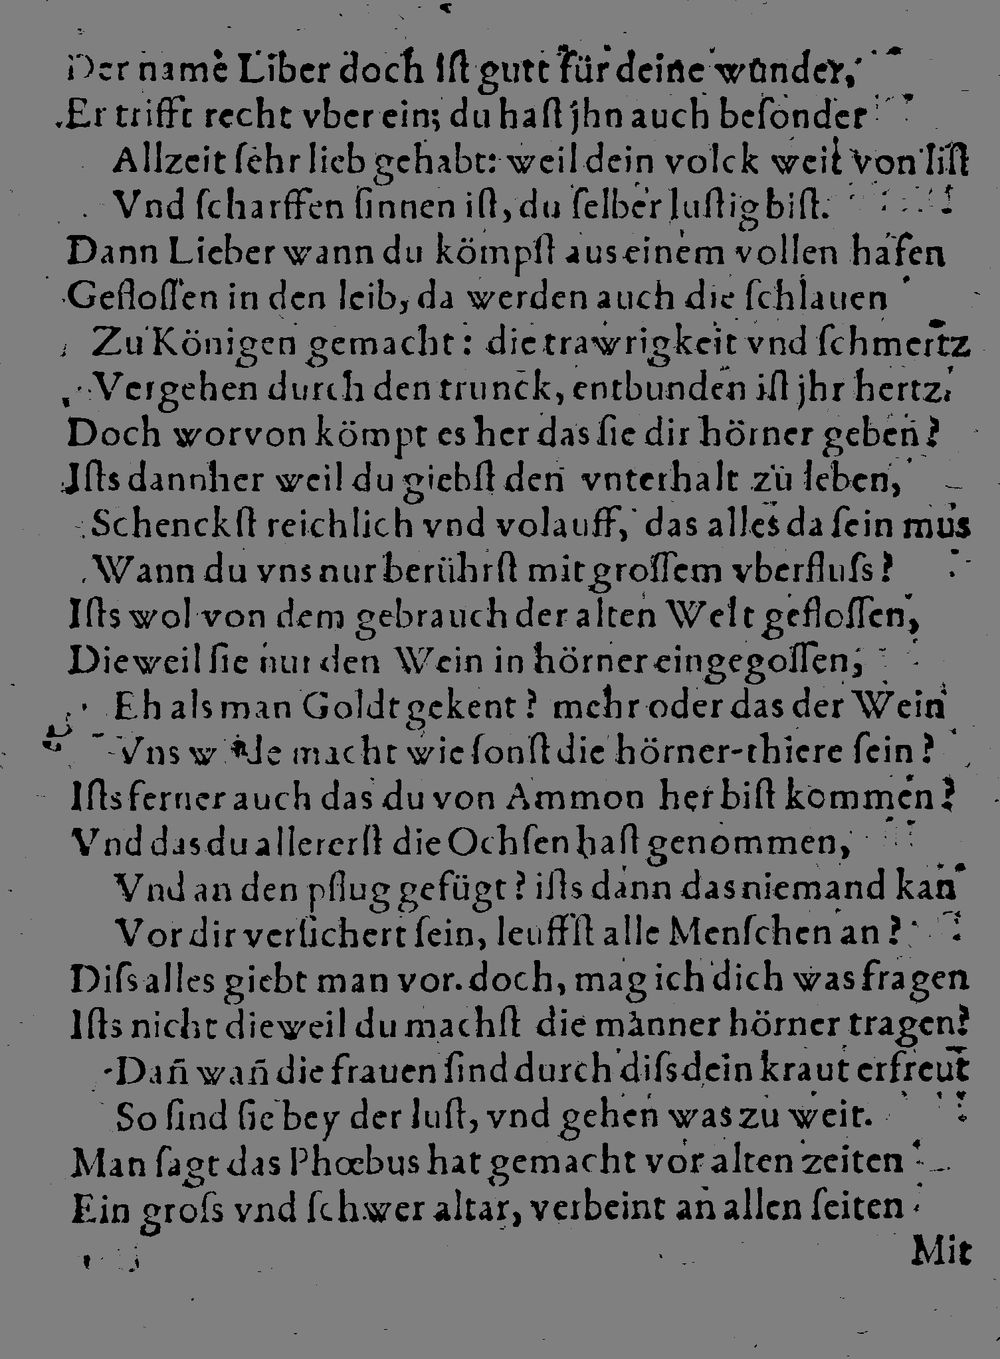 Der name Liber doch Iſt gutt für deine wunder,
Er trifft recht vber ein; du haſt jhn auch beſonder
Allzeit ſehr lieb gehabt: weil dein volck weil von liſt
Vnd ſcharffen ſinnen iſt, du ſelber luſtig biſt.
Dann Lieber wann du kömpſt aus einem vollen hafen
Gefloſſen in den leib, da werden auch die ſchlauen
Zu Königen gemacht: die trawrigkeit vnd ſchmertz
Vergehen durch den trunck, entbunden iſt jhr hertz.
Doch worvon kömpt es her das ſie dir hörner geben?
Iſts dannher weil du giebſt den vnterhalt zu leben,
Schenckſt reichlich vnd volauff, das alles da ſein mus
Wann du vns nur berührſt mit groſſem vberfluſs?
Iſts wol von dem gebrauch der alten Welt gefloſſen,
Dieweil ſie nur den Wein in hörner eingegoſſen,
Eh als man Goldt gekent? mehr oder das der Wein
Vns wilde macht wie ſonſt die hörner-thiere ſein?
Iſts ferner auch das du von Ammon her biſt kommen?
Vnd das du allererſt die Ochſen haſt genommen,
Vnd an den pflug gefügt? iſts dann das niemand kan
Vor dir verſichert ſein, leuffſt alle Menſchen an?
Diſs alles giebt man vor. doch, mag ich dich was fragen
Iſts nicht dieweil du machſt die männer hörner tragen?
Dan̄ wan̄ die frauen ſind durch diſs dein kraut erfreut
So ſind ſie bey der luſt, vnd gehen was zu weit.
Man ſagt das Phœbus hat gemacht vor alten zeiten
Ein groſs vnd ſchwer altar, verbeint an allen ſeiten
Mit